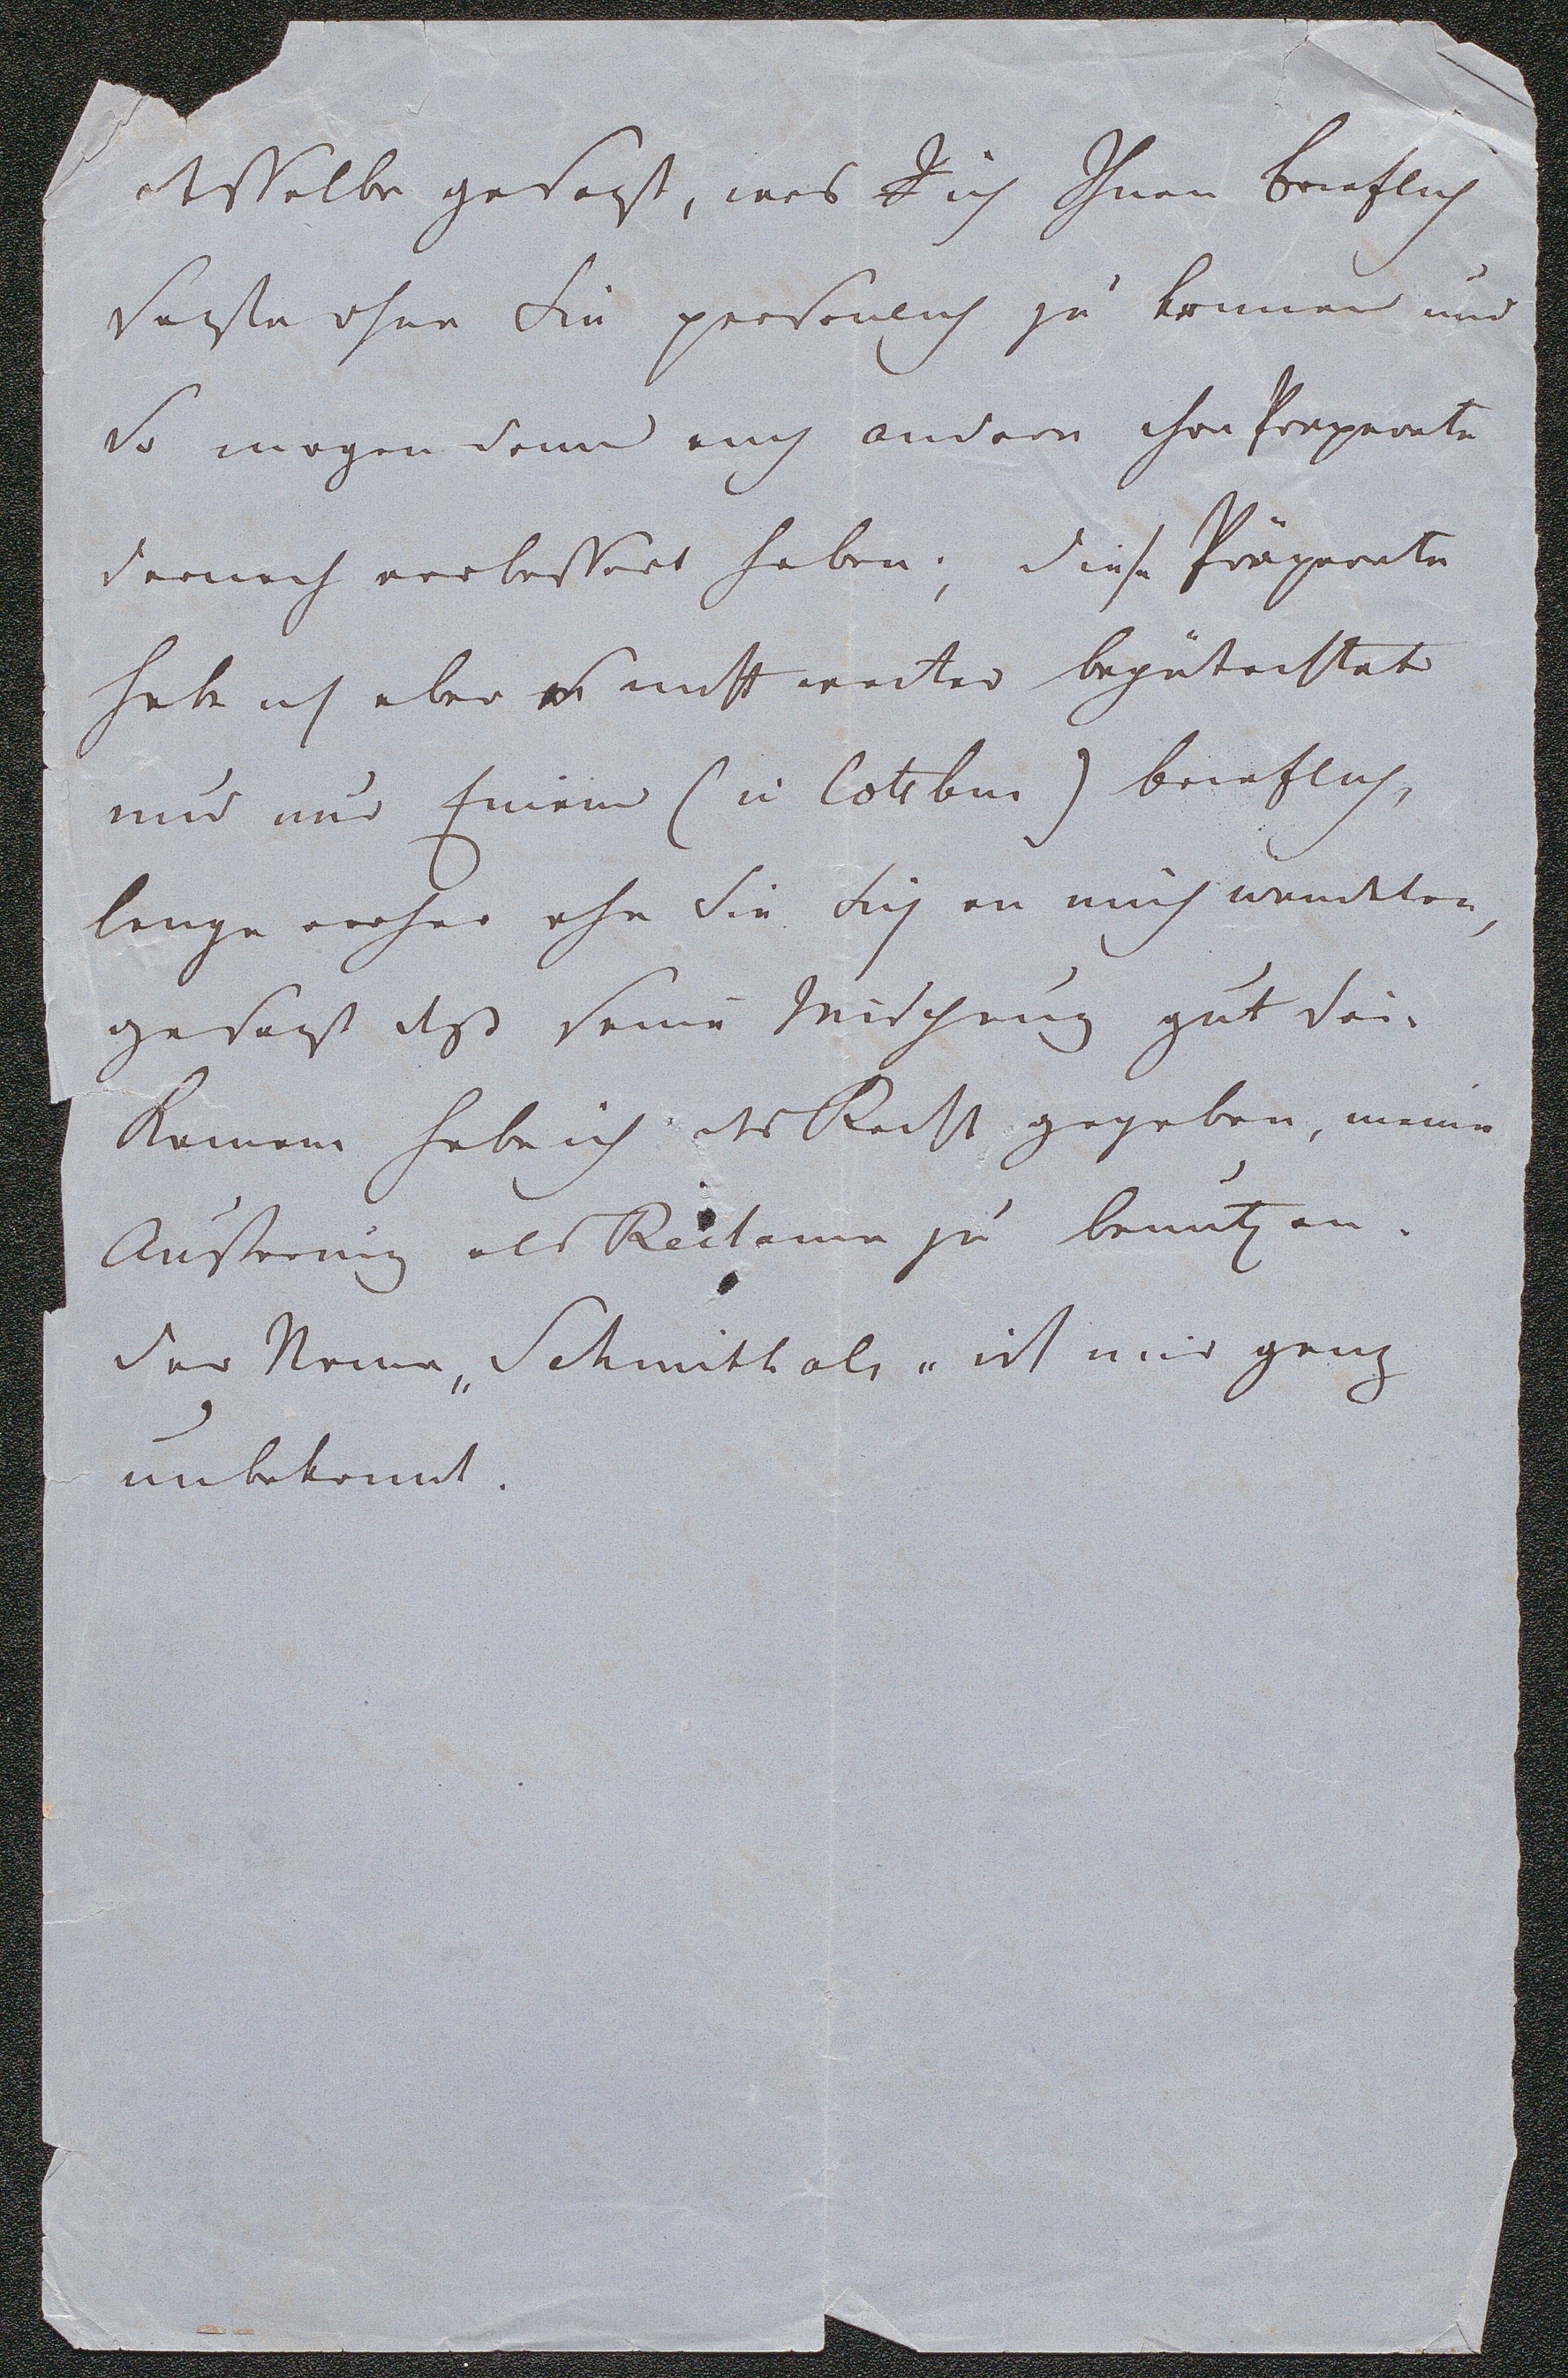 dasselbe gesagt, was ich Ihnen brieflich
sagte ohne Sie persönlich zu kennen und
so mögen denn auch andere ihre Präparate
darnach verbessert haben; diese Präparate
habe ich aber nicht weiter begutachtet
und nur Einem (in Cottbus) brieflich,
lange vorher ehe Sie Sich an mich wandten,
gesagt daß seine Mischung gut sei.
Keinem habe ich das Recht gegeben, meine
Äußerung als Reclame zu benutzen.
Der Name „Schmithals" ist mir ganz
unbekannt.